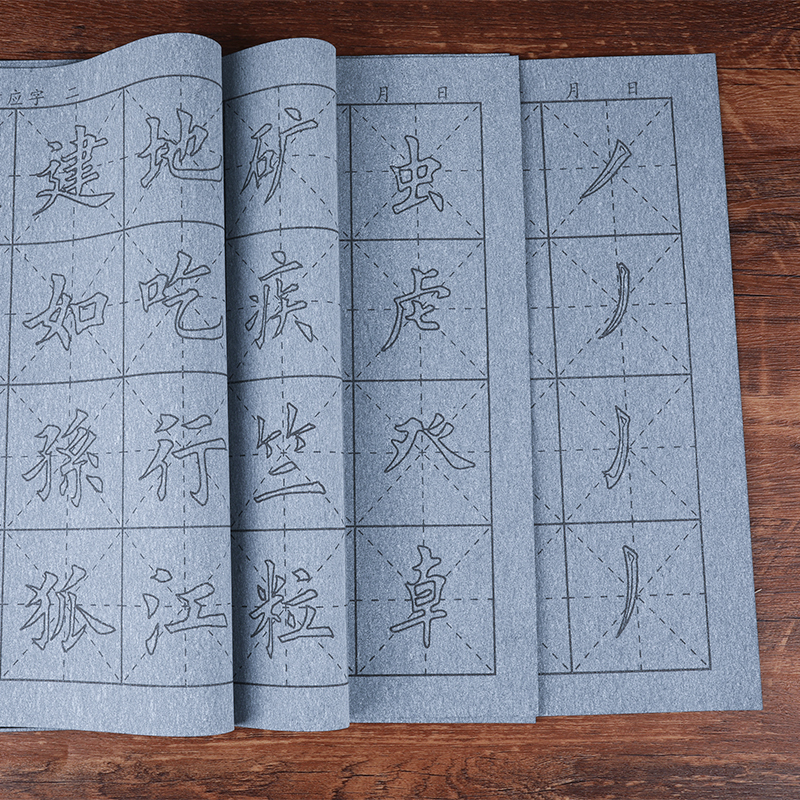 应字 二 月 日 月 日
建 地 矿 虫 丿
如 吃 疾 虍 丿
孫 行 竺 癶 丿
狐 江 粒 卓 丿